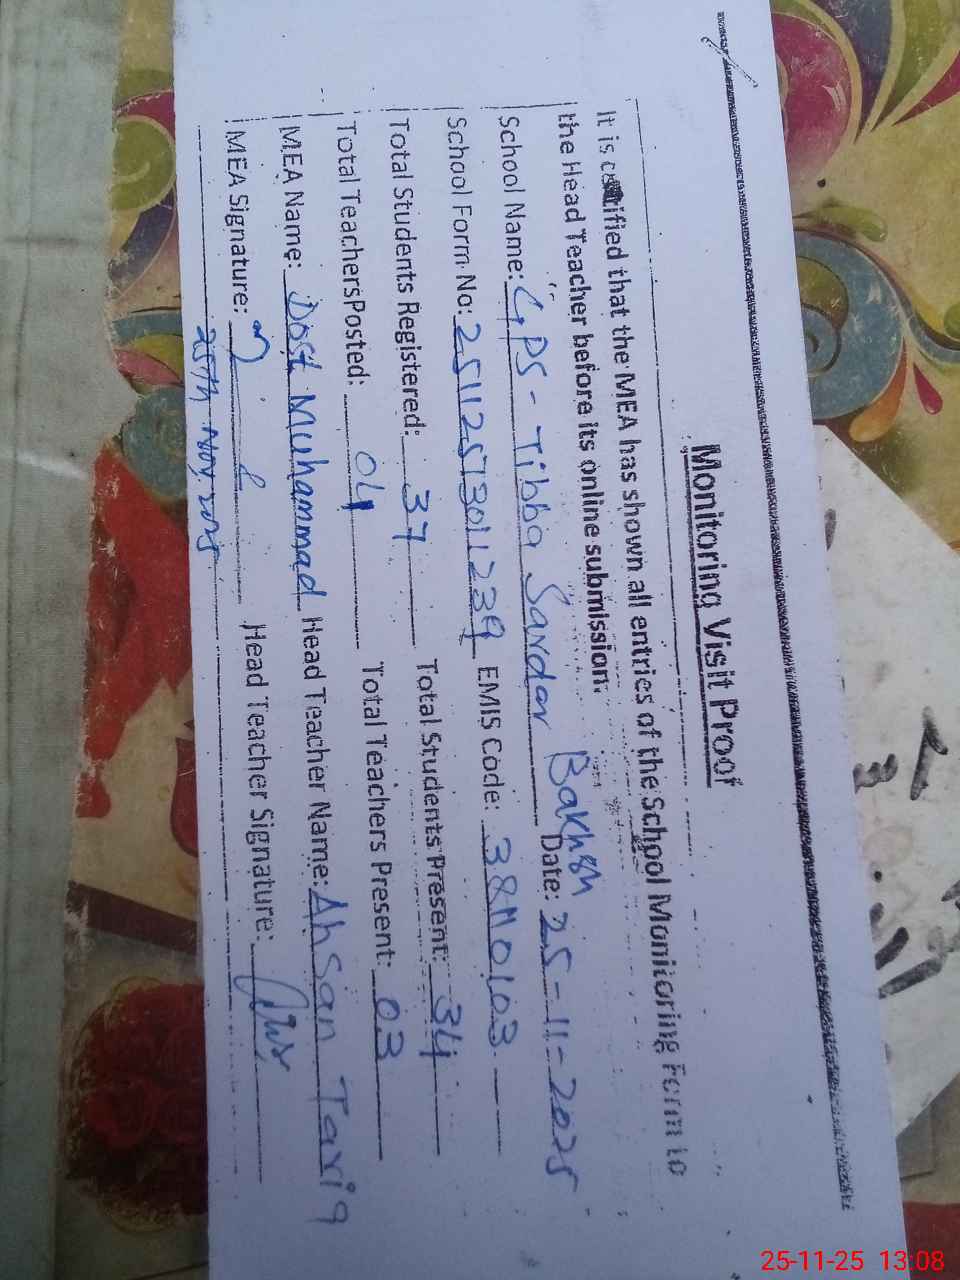 Monitoring Visit Proof
It is certified that the MEA has shown all entries of the School Monitoring Form to
the Head Teacher before its online submission.
School Name: GPS - Tibba Sardar Bakhsh Date: 25-11-2025
School Form No: 25112573011239 EMIS Code: 38110103
Total Students Registered: 37 Total Students Present: 34
Total TeachersPosted: 04 Total Teachers Present: 03
MEA Name: Dost Muhammad Head Teacher Name: Ahsan Tariq
MEA Signature: Head Teacher Signature:
25th Nov. 2025
25-11-25 13:08